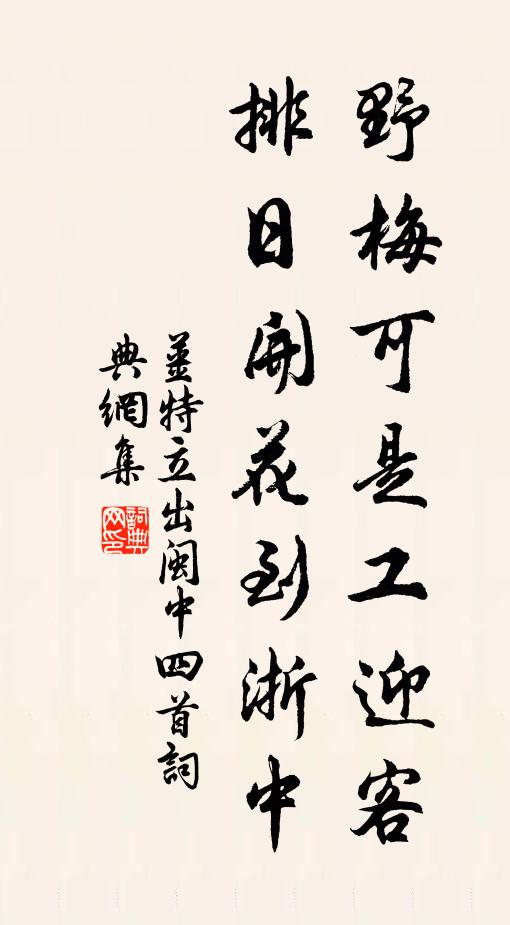 野梅可是工迎客
排日開花到浙中
姜特立出閩中四首詞
典網集
詞典網印